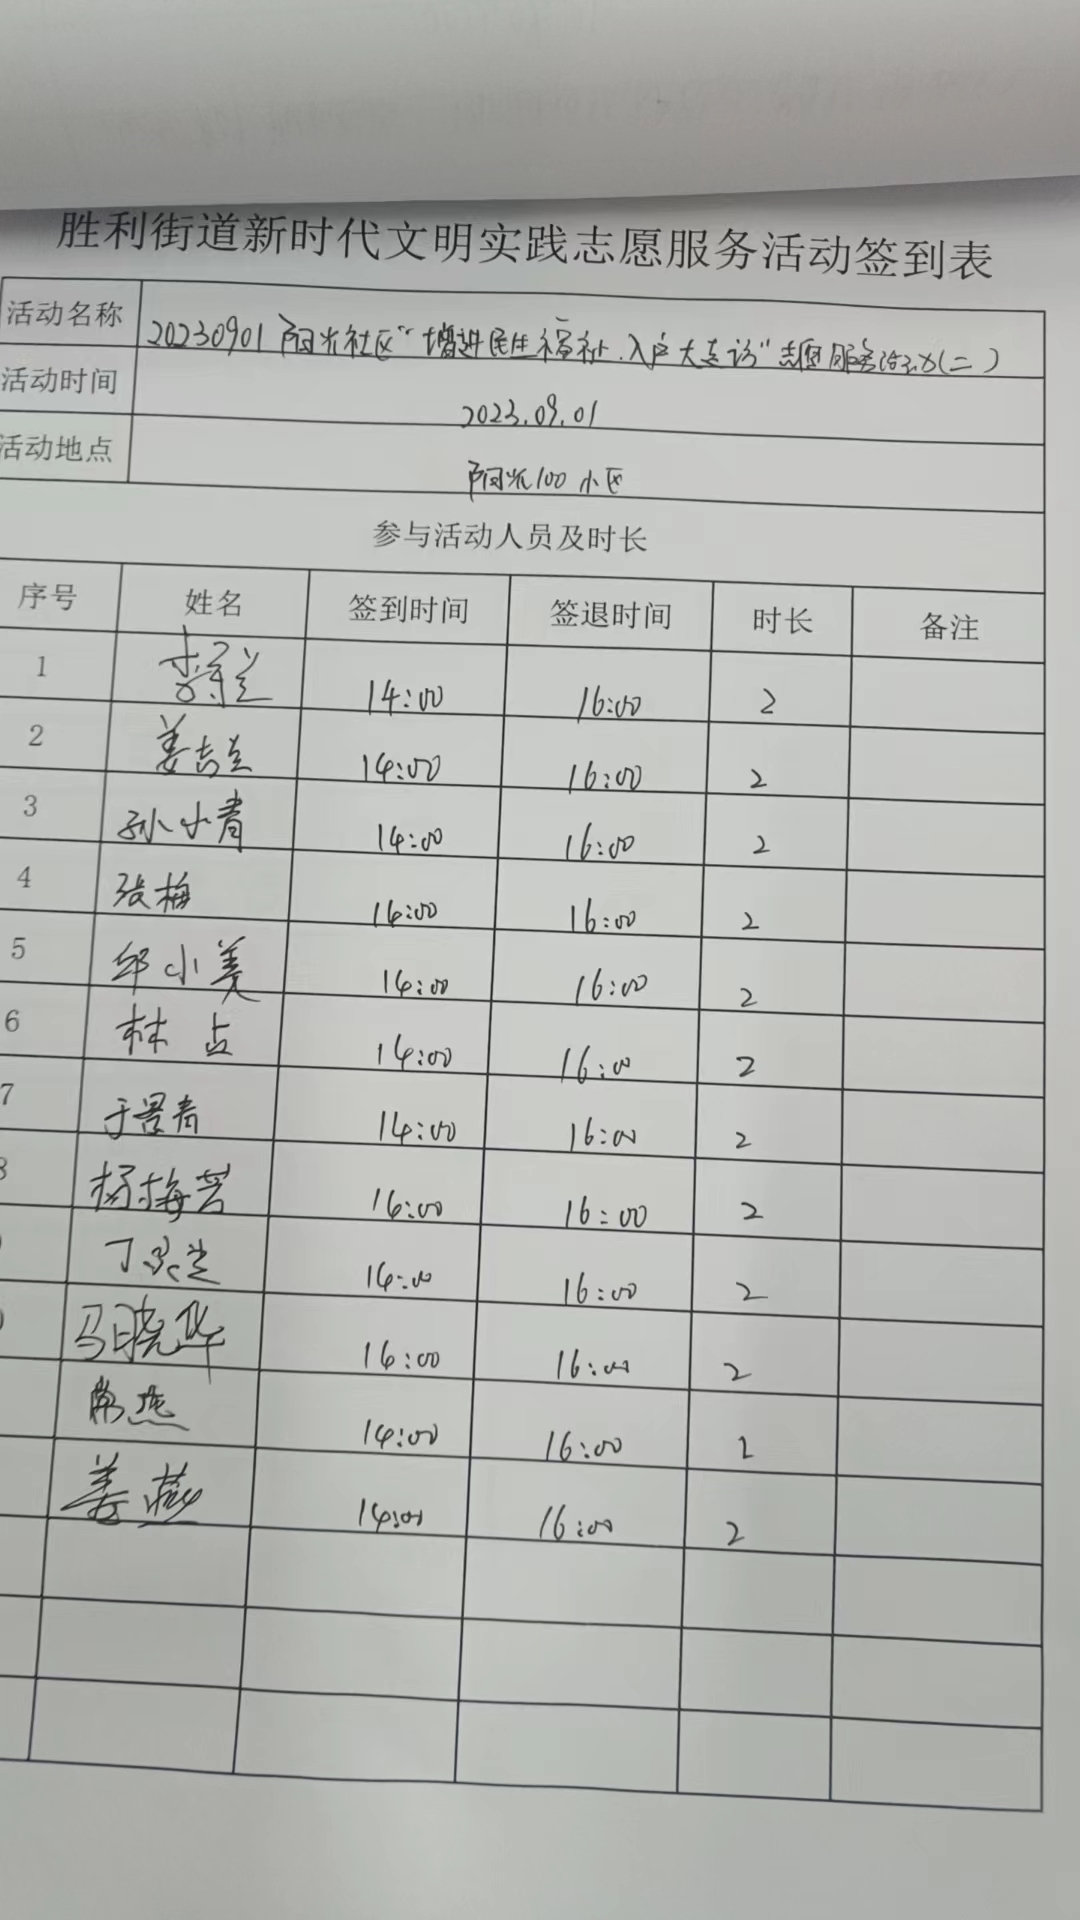 胜利街道新时代文明实践志愿服务活动签到表
活动名称 20230901阳光社区"增进民生福祉.入户大走访"志愿服务活动(二)
活动时间 2023.09.01
活动地点 阳光100小区
参与活动人员及时长
序号 姓名 签到时间 签退时间 时长 备注
1 李 兰 14:00 16:00 2
2 姜吉兰 14:00 16:00 2
3 孙小青 14:00 16:00 2
4 张梅 14:00 16:00 2
5 邱小美 14:00 16:00 2
6 林 占 14:00 16:00 2
7 于景青 14:00 16:00 2
杨梅芳 14:00 16:00 2
丁 兰 14:00 16:00 2
马晓华 14:00 16:00 2
常燕 14:00 16:00 2
姜燕 14:00 16:00 2